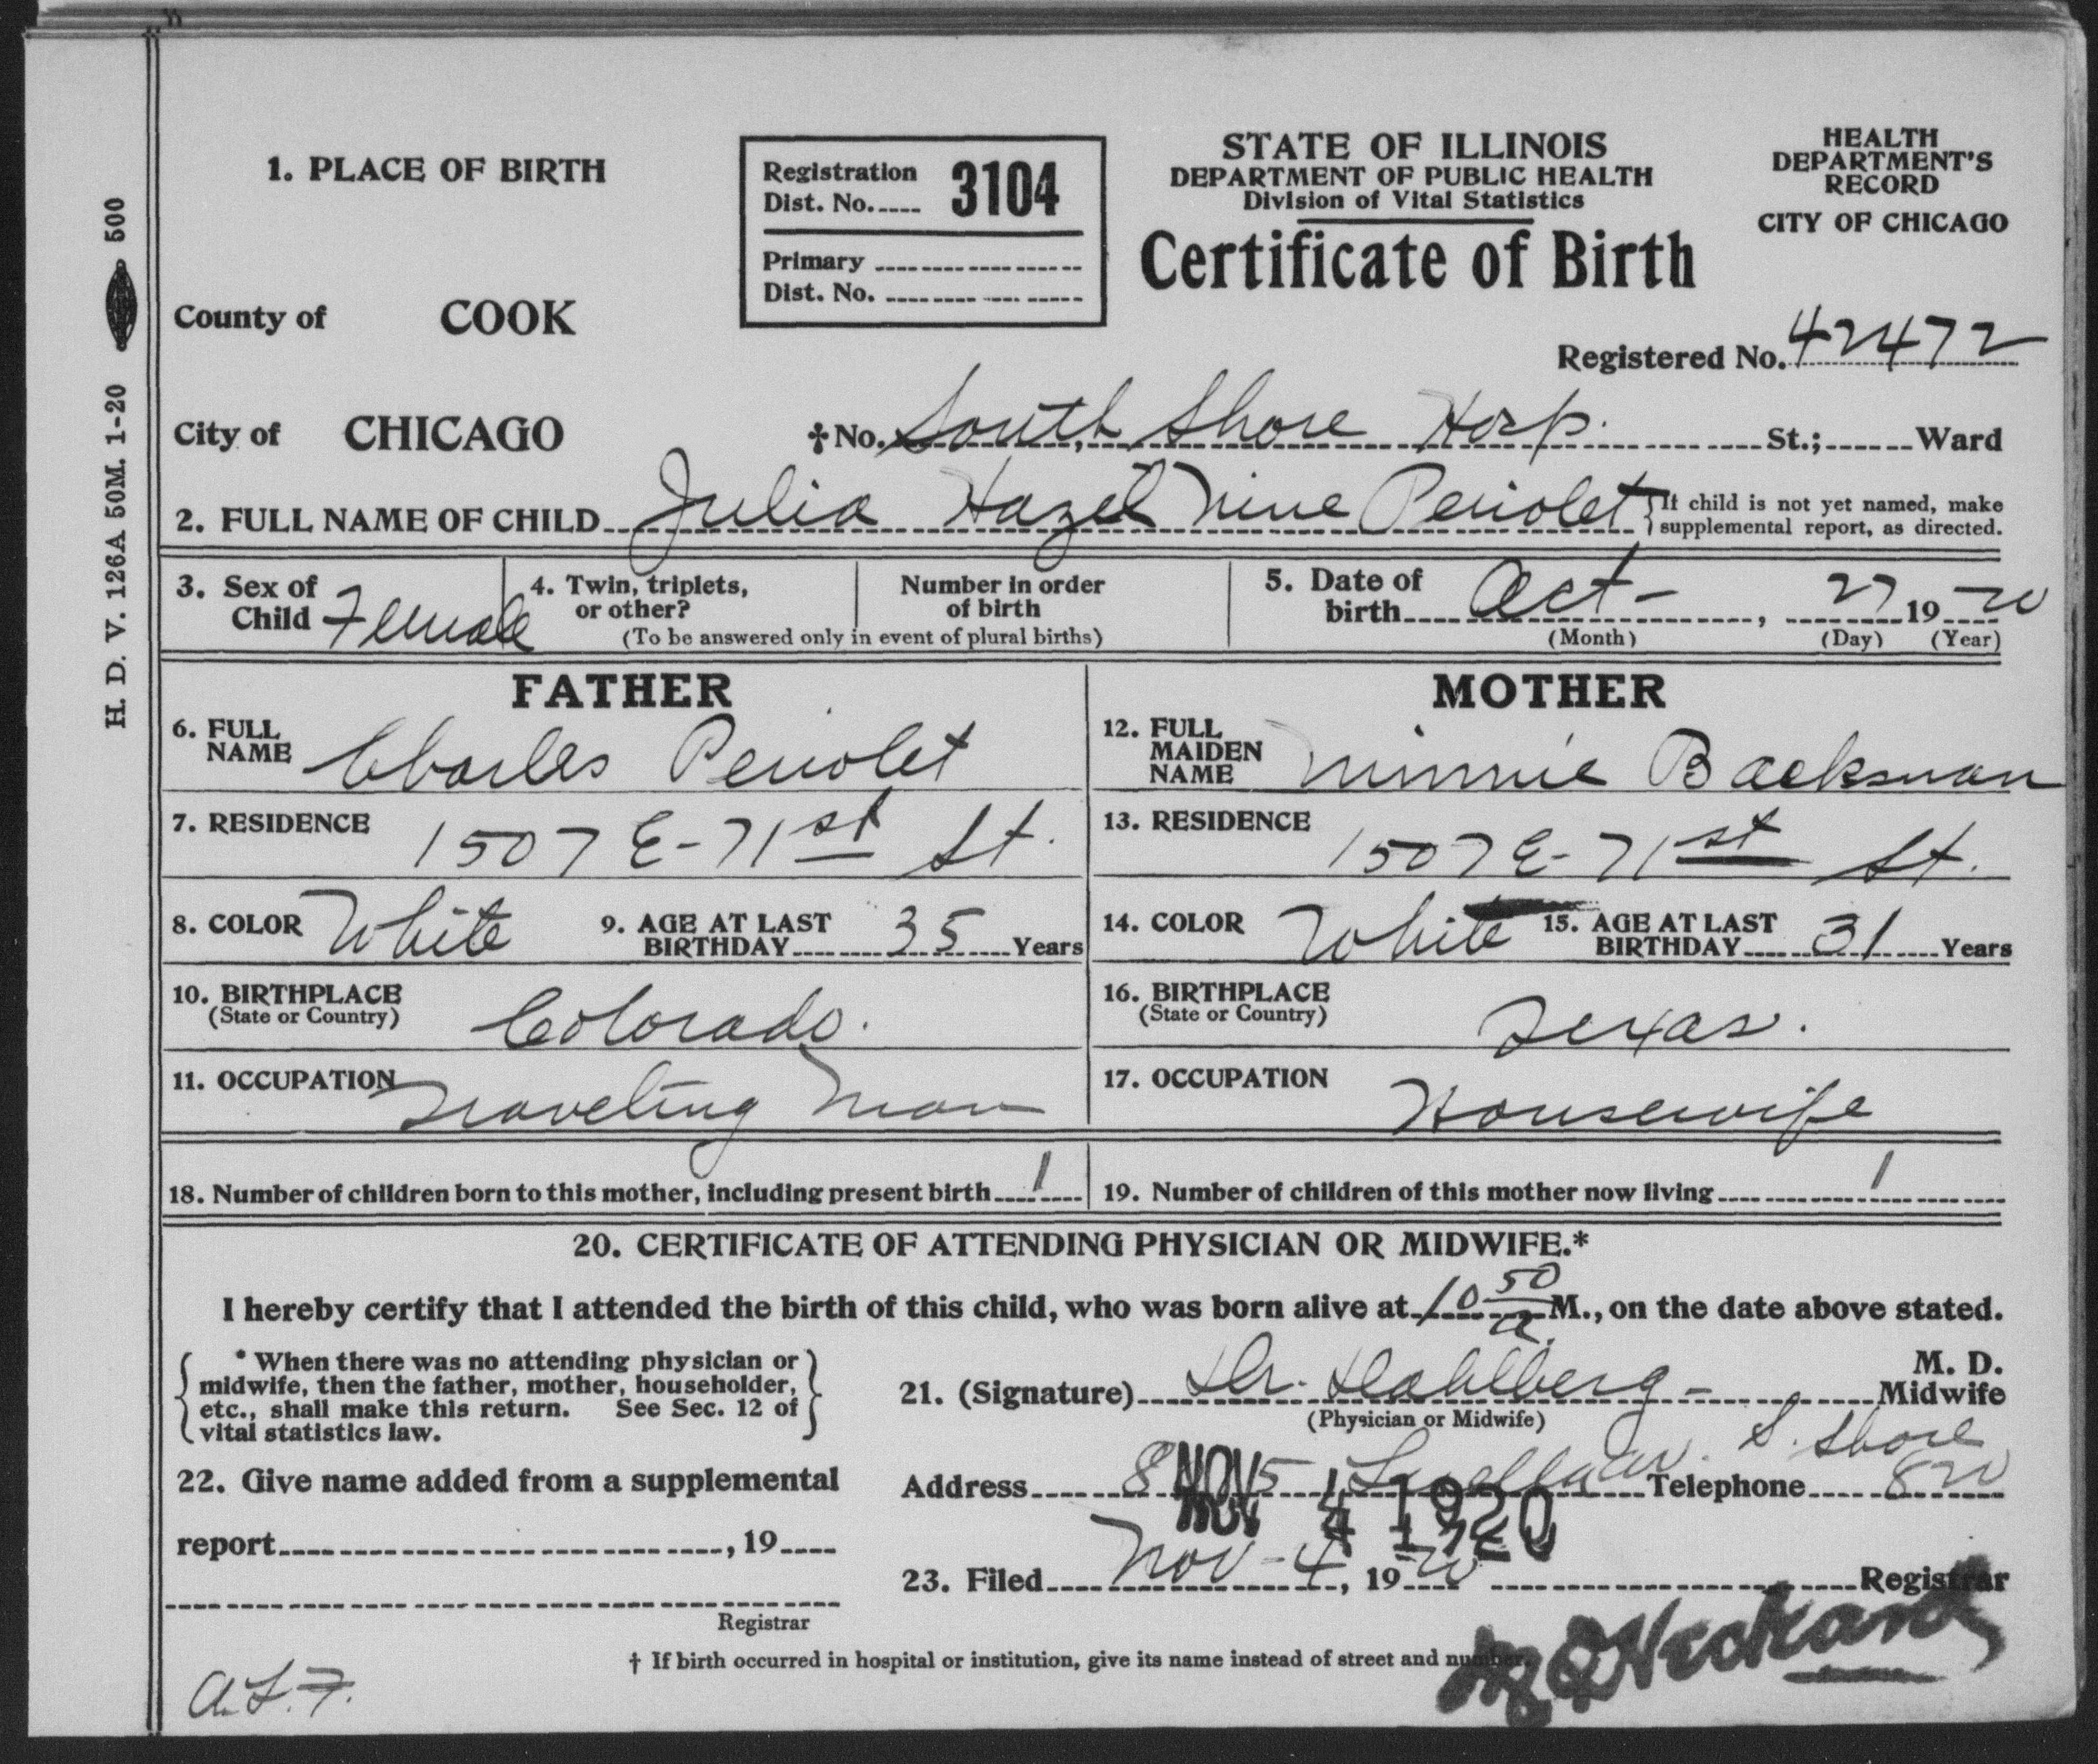 H. D. V. 126A 50M. 1-20 500
1. PLACE OF BIRTH
Registration
Dist. No. 3104
Primary
Dist. No.
STATE OF ILLINOIS
DEPARTMENT OF PUBLIC HEALTH
Division of Vital Statistics
Certificate of Birth
HEALTH
DEPARTMENT'S
RECORD
CITY OF CHICAGO
County of COOK
Registered No. 42472
City of CHICAGO †No. South Shore Hosp. St.; Ward
2. FULL NAME OF CHILD Julia Hazel Periolet { If child is not yet named, make
supplemental report, as directed.
3. Sex of
Child Female
4. Twin, triplets,
or other?
Number in order
of birth
(To be answered only in event of plural births)
5. Date of
birth Oct - , 27 1920
(Month) (Day) (Year)
FATHER
6. FULL
NAME Charles Periolet
7. RESIDENCE 1507 E-71st St.
8. COLOR White 9. AGE AT LAST
BIRTHDAY 35 Years
10. BIRTHPLACE
(State or Country) Colorado.
11. OCCUPATION Traveling Man
MOTHER
12. FULL
MAIDEN
NAME Minnie Backsman
13. RESIDENCE 1507 E-71st St.
14. COLOR White 15. AGE AT LAST
BIRTHDAY 31 Years
16. BIRTHPLACE
(State or Country) Texas.
17. OCCUPATION Housewife
18. Number of children born to this mother, including present birth 1
19. Number of children of this mother now living 1
20. CERTIFICATE OF ATTENDING PHYSICIAN OR MIDWIFE.*
I hereby certify that I attended the birth of this child, who was born alive at 10 50 a. M., on the date above stated.
* When there was no attending physician or
midwife, then the father, mother, householder,
etc., shall make this return. See Sec. 12 of
vital statistics law.
21. (Signature) Dr. Dahlberg - M. D.
Midwife
(Physician or Midwife)
22. Give name added from a supplemental
report , 19
Registrar
Address Telephone S. Shore 820
NOV 4 1920
23. Filed Nov - 4, 1920 Registrar
† If birth occurred in hospital or institution, give its name instead of street and number.
a.L.F.